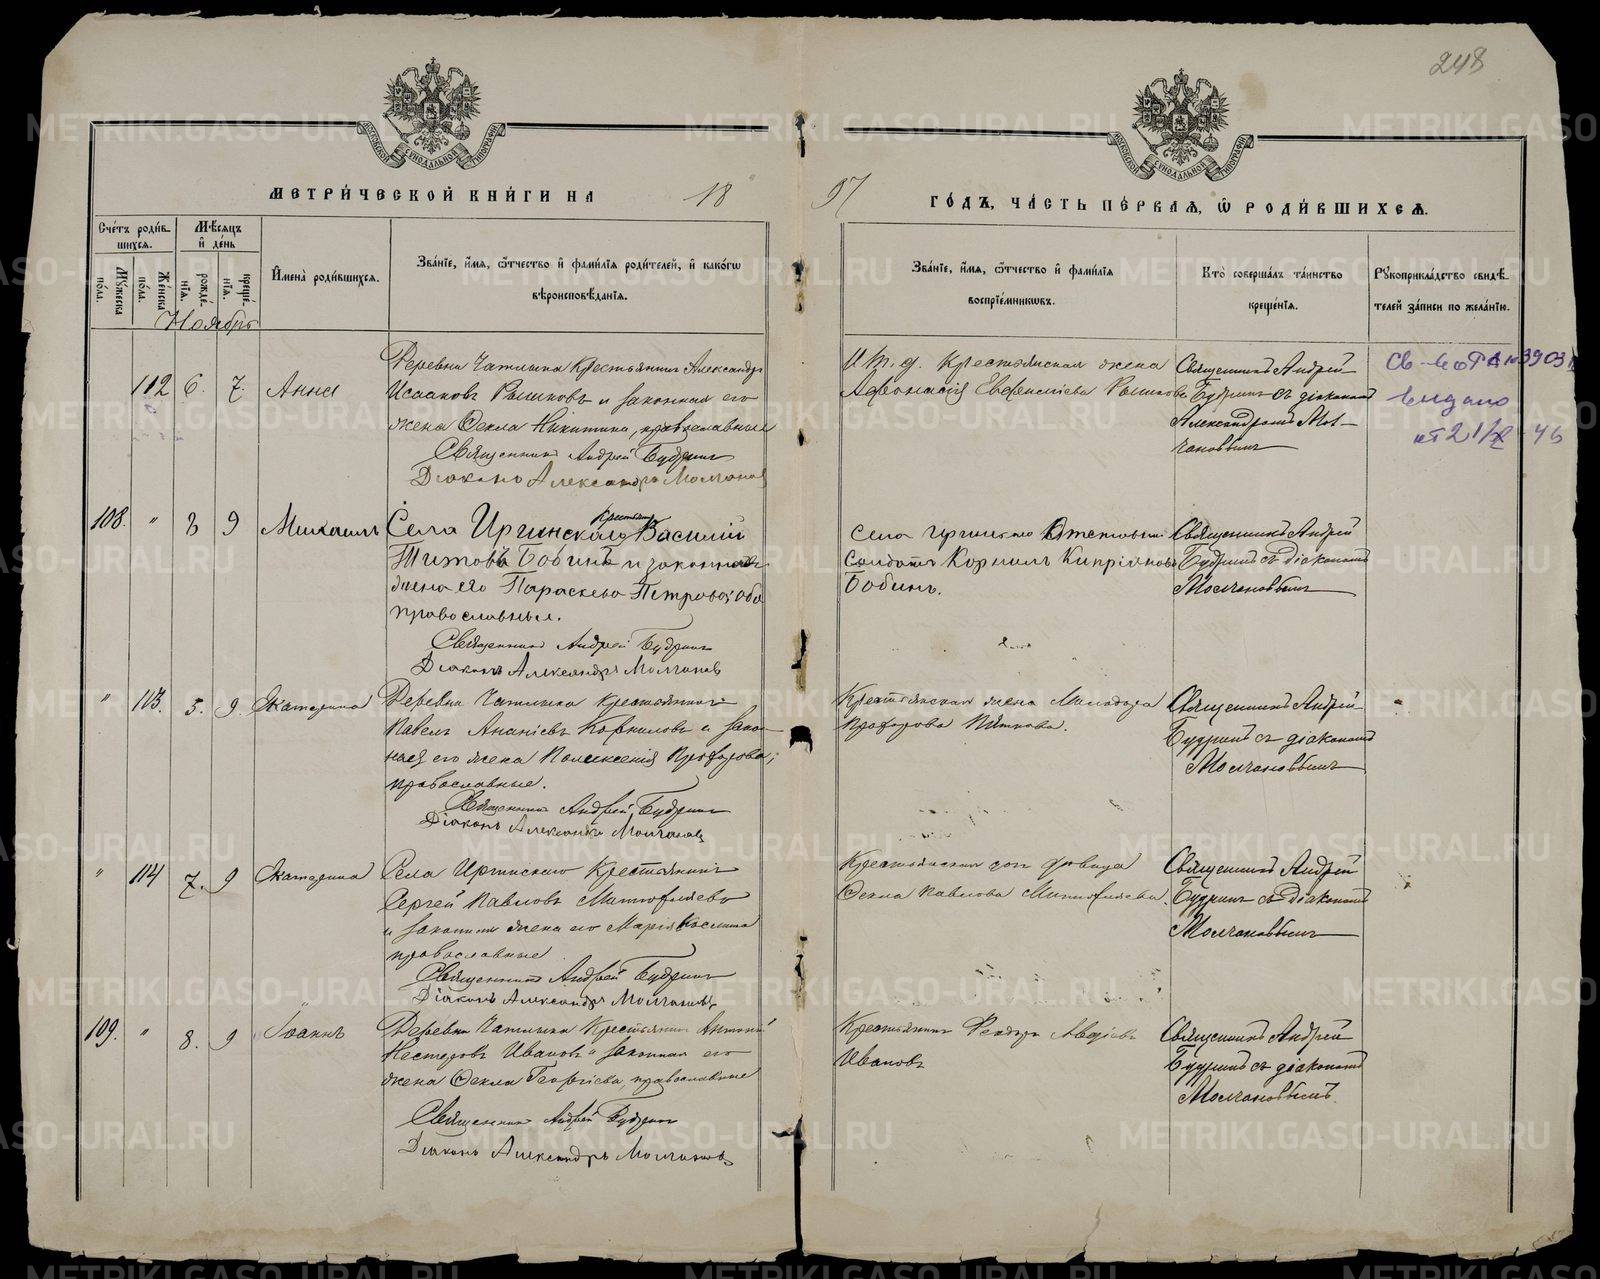 248
МОСКОВСКОЙ СѴНОДАЛЬНОЙ ТИПОГРАФІИ
МОСКОВСКОЙ СѴНОДАЛЬНОЙ ТИПОГРАФІИ
МЕТРИ́ЧЕСКОЙ КНИ́ГИ НА 18 97 ГО́ДЪ, ЧА́СТЬ ПЕ́РВАЯ, Ѡ҆ РОДИ́ВШИХСѦ.
Сче́тъ роди́в-
шихсѧ.
Мꙋ́жеска по́ла.
Же́нска по́ла.
Мѣ́сѧцъ и҆ де́нь
рожде́-нїѧ.
креще́-нїѧ.
И҆мена̀ роди́вшихсѧ.
Зва́нїе, и҆́мѧ, ѻ҆́тчество и҆ фами́лїѧ роди́телей, и҆ како́гѡ
вѣроисповѣ́данїѧ.
Зва́нїе, и҆́мѧ, ѻ҆́тчество и҆ фами́лїѧ
воспрїе́мникѡвъ.
Кто̀ соверша́лъ та́инство
креще́нїѧ.
Рꙋкоприкла́дство свидѣ́-
телей за́писи по жела́нїю.
Ноябрь
112 6. 7. Анна
Деревни Чатлыка Крестьянинъ Александръ
Исааковъ Рышковъ и законная его
жена Ѳекла Никитина, православные
Священникъ Андрей Будринъ
Діаконъ Александръ Молчановъ
И. т. д. Крестьянская жена
Афонасія Рышкова
Священникъ Андрей
Будринъ съ діакономъ
Александромъ Мол-
чановымъ
Св-во 3903
выдано
108. " 8 9 Михаилъ
Села Иргинскаго Крестьян. Василій
Титовъ Бобинъ и законная
жена его Параскева Петрова оба
православные.
Священникъ Андрей Будринъ
Діаконъ Александръ Молчановъ
Села Иргинскаго Отставный
Солдатъ Корнилъ Кипріановъ
Бобинъ.
Священникъ Андрей
Будринъ съ діакономъ
Молчановымъ
" 113. 5. 9. Екатерина
Деревни Чатлыка Крестьянинъ
Павелъ Ананіевъ Корниловъ и закон-
ная его жена Поликсенія Прохорова;
православные.
Священникъ Андрей Будринъ
Діаконъ Александръ Молчановъ
Крестьянская жена
Прохорова
Священникъ Андрей
Будринъ съ діакономъ
Молчановымъ
" 114 7. 9 Екатерина
Села Иргинскаго Крестьянинъ
Сергей Павловъ
и законная жена его Марія
православные
Священникъ Андрей Будринъ
Діаконъ Александръ Молчановъ
Крестьянская дочь девица
Ѳекла Павлова
Священникъ Андрей
Будринъ съ діакономъ
Молчановымъ
109. " 8. 9 Іоаннъ
Деревни Чатлыка Крестьянинъ Антоній
Несторовъ Ивановъ и законная его
жена Ѳекла Георгіева, православные
Священникъ Андрей Будринъ
Діаконъ Александръ Молчановъ
Крестьянинъ Феодоръ
Ивановъ
Священникъ Андрей
Будринъ съ діакономъ
Молчановымъ.
METRIKI.GASO-URAL.RU